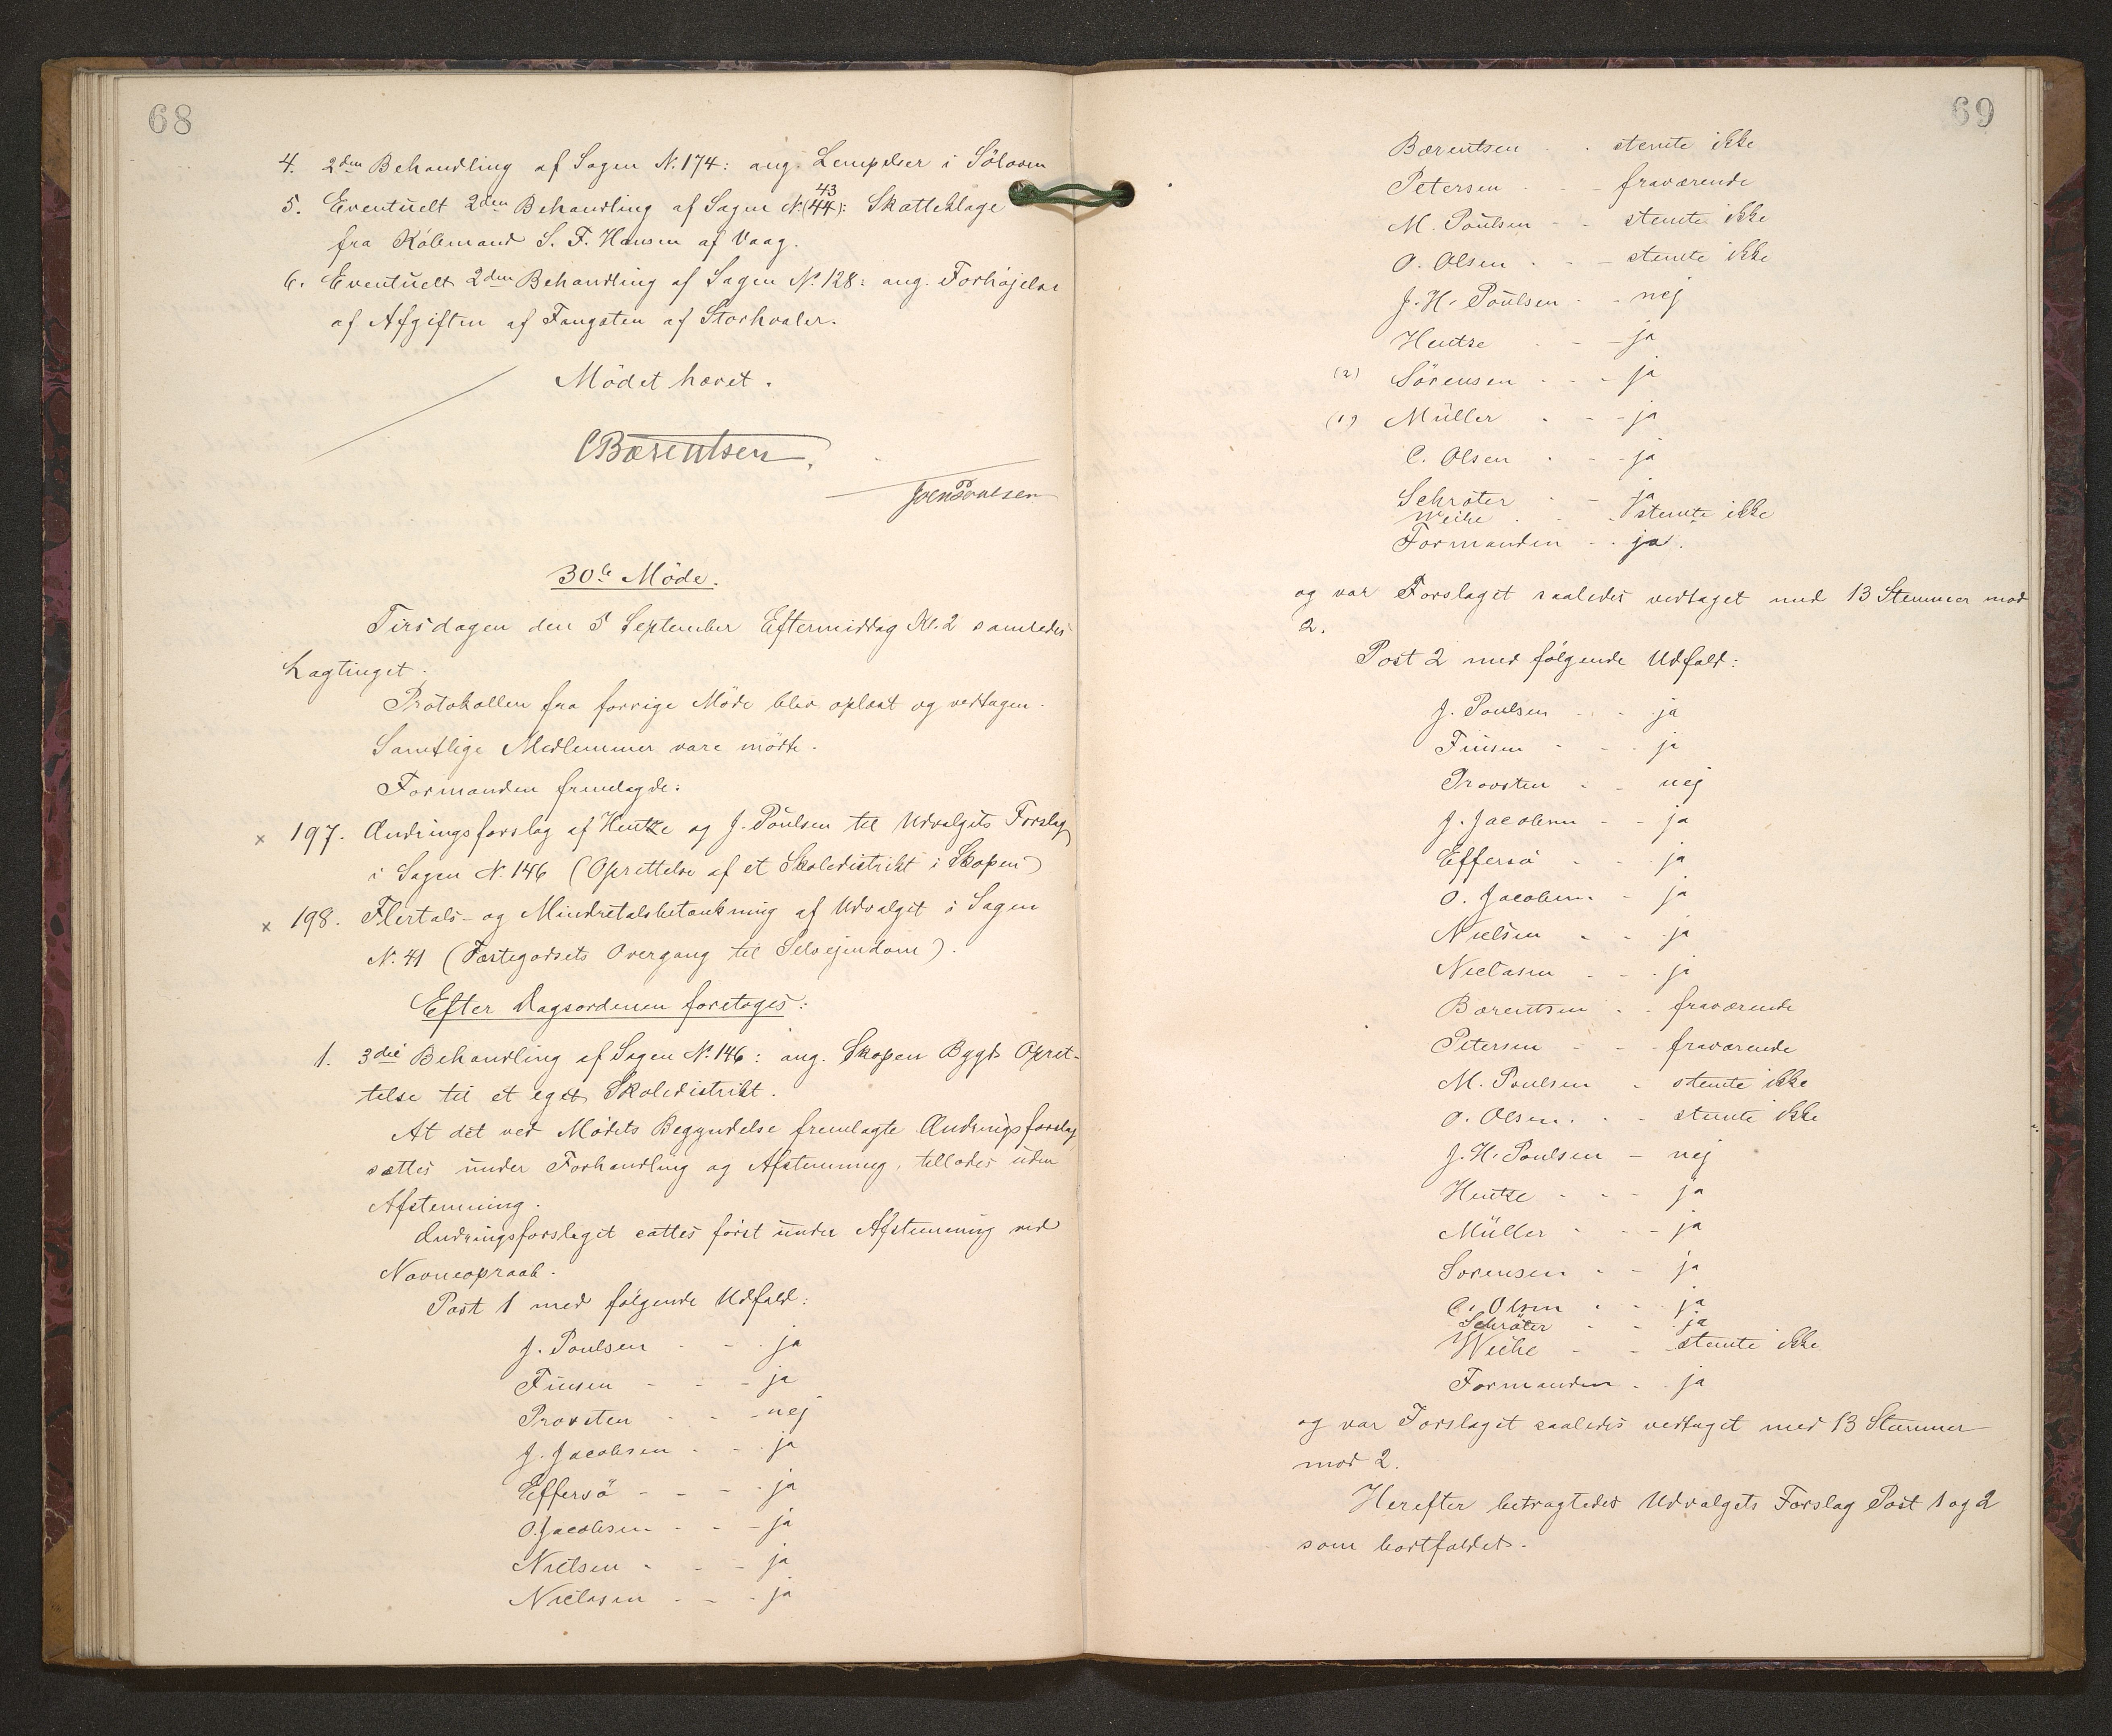 68
4. 2den Behandling af Sagen N. 174: ang. Lempelser i Søloven
5. Eventuelt 2den Behandling af Sagen N. (44): Skatteklage
43
fra Købmand S. F. Hansen af Vaag.
6. Eventuelt 2den Behandling af Sagen No. 128: ang. Forhøjelse
af Afgiften af Fangsten af Storhvaler.
Mödet hævet.
CBærentsen.
JoenPoulsen
30te Möde.
Tirsdagen den 5 September Eftermiddag Kl. 2 samledes
Lagtinget.
Protokollen fra forrige Möde blev oplæst og vedtagen.
Samtlige Medlemmer vare mödte.
Formanden fremlagde:
x 197. Ændringsforslag af Hentze og J. Poulsen til Udvalgets Forslag
i Sagen N. 146 (Oprettelse af et Skoledistrikt i Skopen)
x 198. Flertals- og Mindretalsbetænkning af Udvalget i Sagen
N. 41 (Fæstegodsets Overgang til Selvejendom).
Efter Dagsordenen foretoges:
1. 3die Behandling af Sagen No. 146: ang. Skopen Bygds Opret-
telse til et eget Skoledistrikt.
At det ved Mödets Begyndelse fremlagte Ændringsforslag
sattes under Forhandling og Afstemning, tillodes uden
Afstemning.
Ændringsforslaget sattes först under Afstemning ved
Navneopraab.
Post 1 med følgende Udfald:
J. Poulsen - - ja
Finsen - - - ja
Provsten - - - nej
J. Jacobsen - - - ja
Effersö - - - - ja
O. Jacobsen - - - ja
Nielsen - - - ja
Niclasen - - - ja
69
Bærentsen - - stemte ikke
Petersen - - fraværende
M. Poulsen - - stemte ikke
O. Olsen - - - stemte ikke
J. H. Poulsen - - nej
Hentze - - - ja
(2) Sörensen - - - ja
(1) Müller - - - ja
C. Olsen - - - ja
Schröter - - ja
Weihe - - stemte ikke
Formanden - - ja.
og var Forslaget saaledes vedtaget med 13 Stemmer mod
2.
Post 2 med følgende Udfald:
J. Poulsen - - ja
Finsen - - - ja
Provsten - - nej
J. Jacobsen - - ja
Effersö - - ja
O. Jacobsen - ja
Nielsen - - ja
Niclasen - - - ja
Bærentsen - - fraværende
Petersen - - - fraværende
M. Poulsen - stemte ikke
O. Olsen. - - stemte ikke
J. H. Poulsen - nej
Hentze - - - ja
Müller - - - ja
Sorensen - - ja
C. Olsen - - ja
Schröter - - ja
Weihe - - stemte ikke
Formanden - - ja
og var Forslaget saaledes vedtaget med 13 Stemmer
mod 2.
Herefter betragtedes Udvalgets Forslag Post 1 og 2
som bortfaldet.